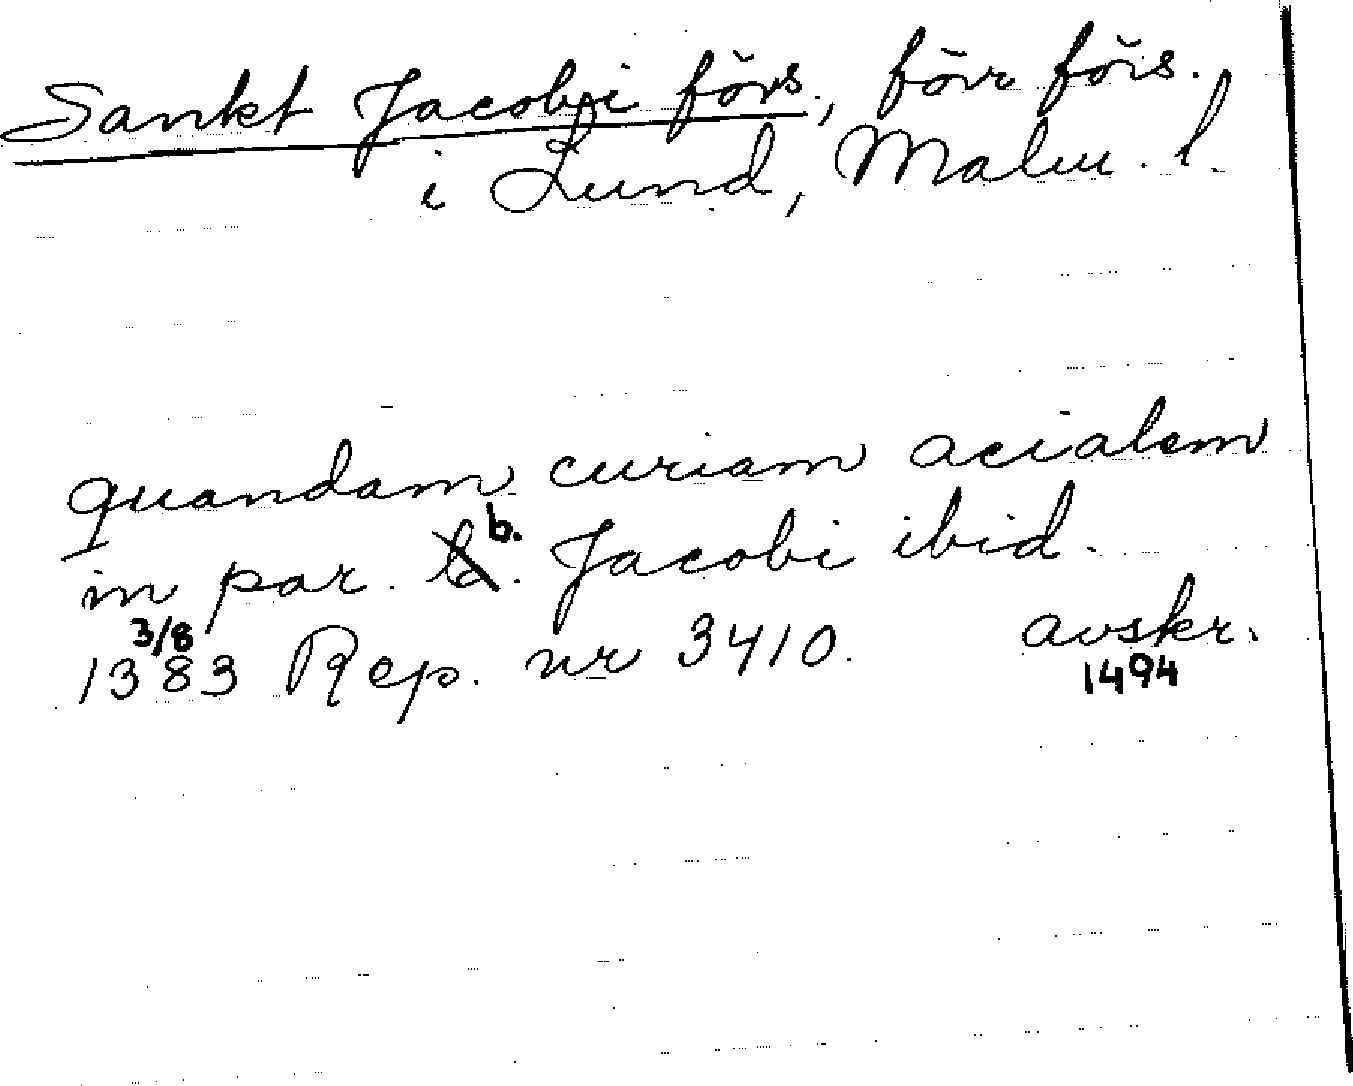 Sankt Jacobi förs., förr förs.
i Lund, Malm. l.
quandam curiam acialem
in par. b. Jacobi ibid.
3/8
1383 Rep. nr 3410. avskr.
1494